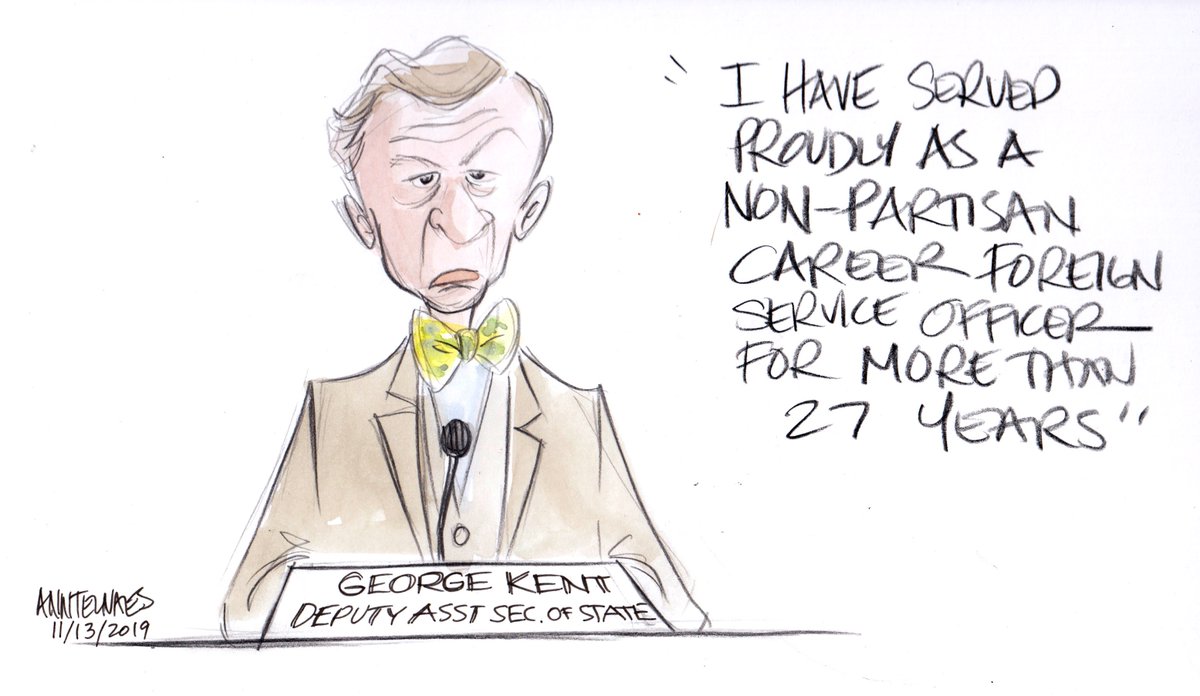 " I HAVE SERVED
PROUDLY AS A
NON-PARTISAN
CAREER FOREIGN
SERVICE OFFICER
FOR MORE THAN
27 YEARS"
GEORGE KENT
DEPUTY ASST SEC. OF STATE
ANNTELNAES
11/13/2019